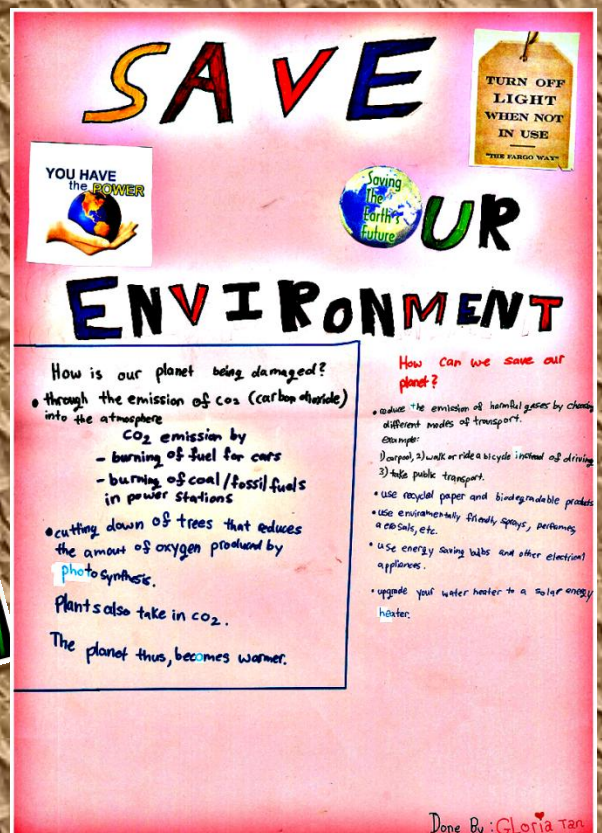 SAVE
TURN OFF
LIGHT
WHEN NOT
IN USE
"THE FARGO WAY"
YOU HAVE
the POWER
Saving
The
Earth's
Future
OUR
ENVIRONMENT
How is our planet being damaged?
• through the emission of CO2 (carbon dioxide)
into the atmosphere
CO2 emission by
- burning of fuel for cars
- burning of coal/fossil fuels
in power stations
• cutting down of trees that reduces
the amout of oxygen produced by
photosynthesis.
Plants also take in CO2.
The planet thus, becomes warmer.
How can we save our
planet?
• reduce the emission of harmful gases by choosing
different modes of transport.
Example:
1) carpool, 2) walk or ride a bicycle instead of driving
3) take public transport.
• use recycled paper and biodegradable products
• use enviramentally friendly sprays, perfumes,
aerosals, etc.
• use energy saving bulbs and other electrical
appliances.
• upgrade your water heater to a solar energy
heater.
Done By: Gloria Tan